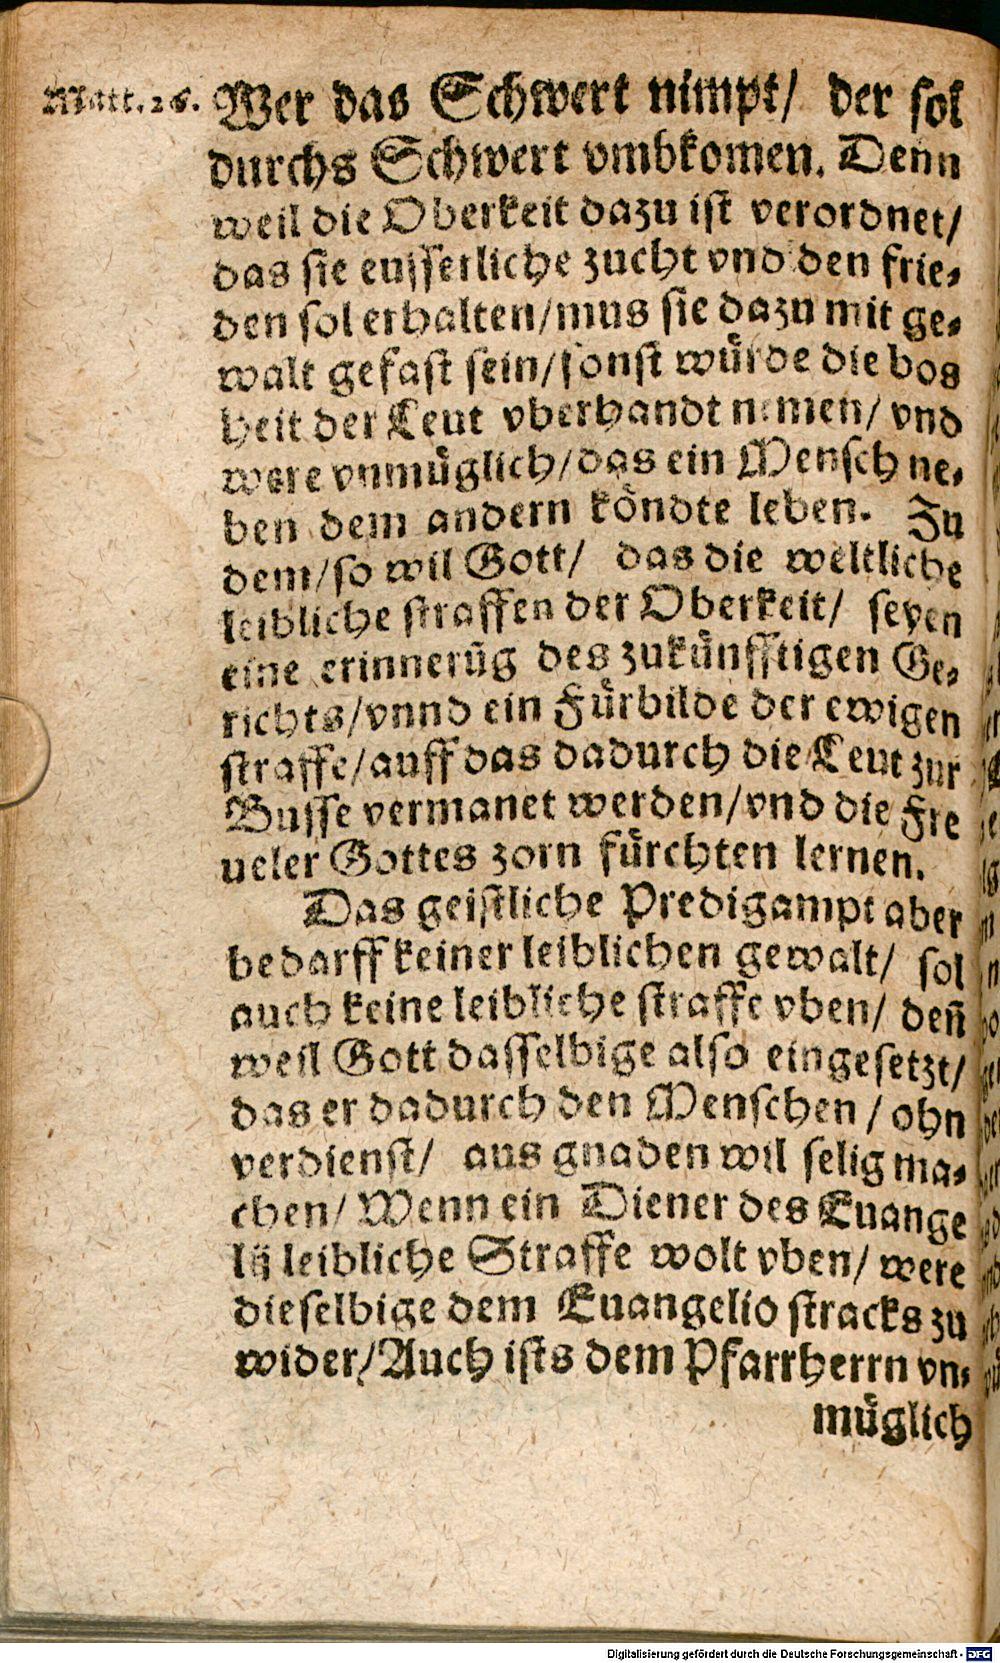 Matt. 26. Wer das Schwert nimpt/ der sol
durchs Schwert vmbkomen. Denn
weil die Oberkeit dazu ist verordnet/
das sie eusserliche zucht vnd den frie⸗
den sol erhalten/mus sie dazu mit ge⸗
walt gefast sein/sonst würde die bos
heit der Leut vberhandt nemen/ vnd
were vnmüglich/das ein Mensch ne⸗
ben dem andern köndte leben. Zu
dem/so wil Gott/ das die weltliche
leibliche straffen der Oberkeit/ seyen
eine erinnerũg des zukünfftigen Ge⸗
richts/vnnd ein Fürbilde der ewigen
straffe/auff das dadurch die Leut zur
Busse vermanet werden/vnd die Fre
ueler Gottes zorn fürchten lernen.
Das geistliche Predigampt aber
bedarff keiner leiblichen gewalt/ sol
auch keine leibliche straffe vben/ deñ
weil Gott dasselbige also eingesetzt/
das er dadurch den Menschen / ohn
verdienst/ aus gnaden wil selig ma⸗
chen/ Wenn ein Diener des Euange
lij leibliche Straffe wolt vben/ were
dieselbige dem Euangelio stracks zu
wider/Auch ists dem Pfarrherrn vn⸗
müglich
Digitalisierung gefördert durch die Deutsche Forschungsgemeinschaft - DFG